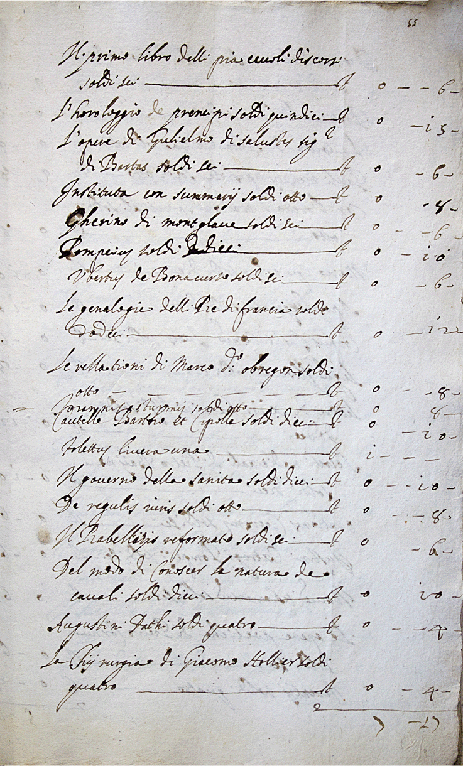 55
Il primo libro delli piacevoli discorsi
soldi sei £ 0 - 6 -
L'horologgio de prencipi soldi quindici £ 0 - 15 -
L'opere di Guilielmo di salustes sig.r
di Bartas soldi sei £ 0 - 6 -
Instituta con summarij soldi otto £ 0 - 8 -
Gherino di montglave soldi sei £ 0 - 6 -
Pompeius soldi dieci £ 0 - 10 -
Ubertus de Bonacurso soldi sei £ 0 - 6 -
Le genalogie delli Re di francia soldi
dodeci £ 0 - 12 -
Le relationi di Marco di obregon soldi
otto £ 0 - 8 -
soldi otto £ 0 - 8 -
Cautelle Bartho et Cipolle soldi dieci £ 0 - 10 -
Tolettus livera una £ 1 -
Il governo della sanita soldi dieci £ 0 - 10 -
De regulis iuris soldi otto £ 0 - 8 -
Il Rabellesio reformato soldi sei £ 0 - 6 -
Del modo di Conoscer la natura de
cavali soldi dieci £ 0 - 10 -
Augustini Dathi soldi quatro £ 0 - 4 -
La Chirurgia di Giacomo Hollier soldi
quatro £ 0 - 4 -
7 - 17